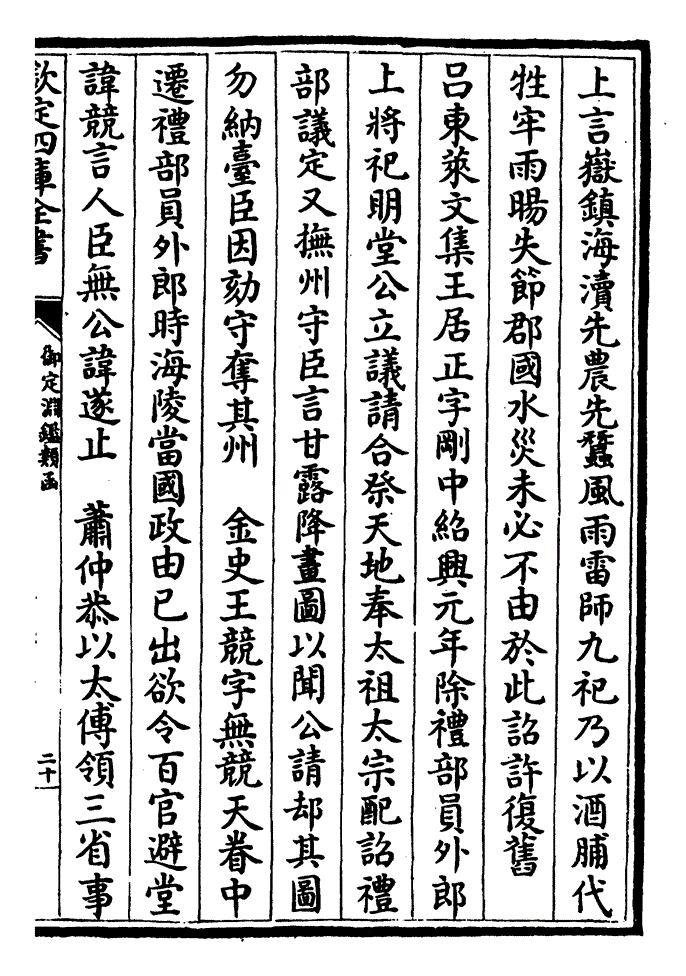 上言嶽鎮海瀆先農先蠶風雨雷師九祀乃以酒脯代
牲牢雨暘失節郡國水災未必不由於此詔許復舊
呂東萊文集王居正字剛中紹興元年除禮部員外郎
上將祀明堂公立議請合祭天地奉太祖太宗配詔禮
部議定又撫州守臣言甘露降畫圖以聞公請却其圖
勿納臺臣因劾守奪其州　金史王競字無競天眷中
遷禮部員外郎時海陵當國政由已出欲令百官避堂
諱競言人臣無公諱遂止　蕭仲恭以太傅領三省事
欽定四庫全書
御定淵鑑類函
二十